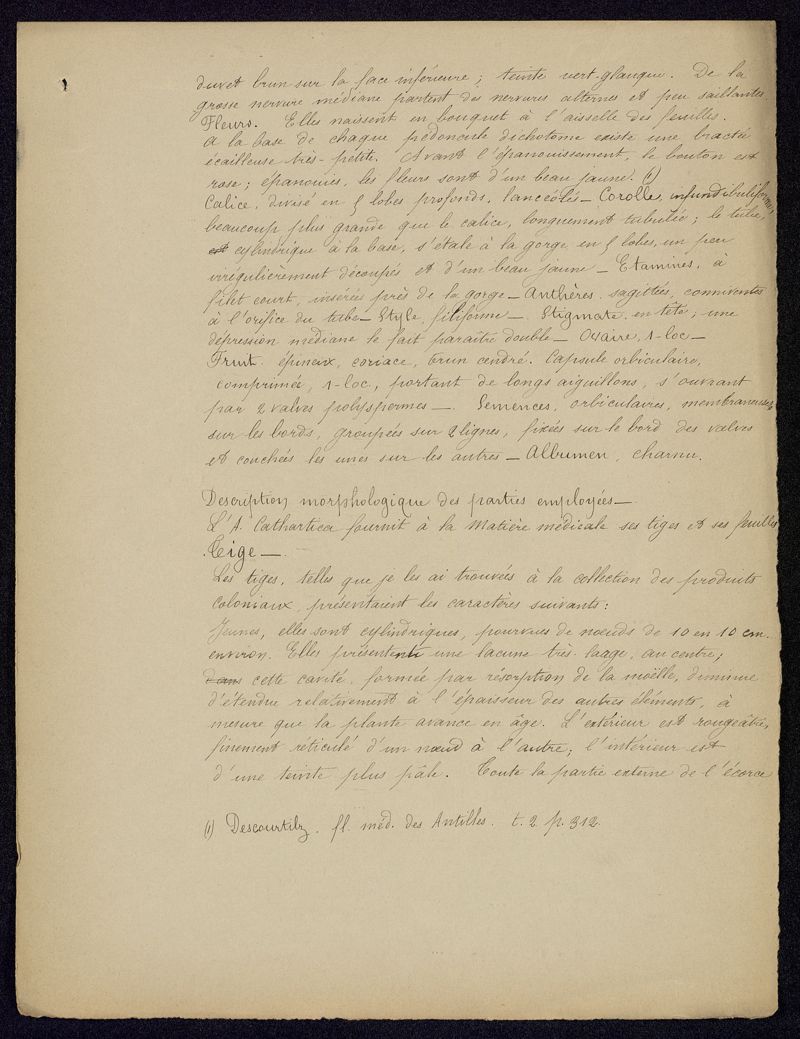 duvet brun sur la face inférieure ; teinte vert-glauque. De la
grosse nervure médiane partent des nervures alternes et peu saillantes.
Fleurs. Elles naissent en bouquet à l'aisselle des feuilles.
A la base de chaque pédoncule dichotome existe une bractée
écailleuse très-petite. Avant l'épanouissement, le bouton est
rose ; épanouies, les fleurs sont d'un beau jaune. (1)
Calice, divisé en 5 lobes profonds, lancéolés — Corolle, infundibuliforme,
beaucoup plus grande que le calice, longuement tubulée ; le tube,
est cylindrique à la base, s'étale à la gorge en 5 lobes, un peu
irrégulièrement découpés et d'un beau jaune — Etamines, à
filet court, insérées près de la gorge — Anthères sagittées, conniventes
à l'orifice du tube — Style, filiforme — Stigmate en tête ; une
dépression médiane le fait paraître double — Ovaire, 1-loc —
Fruit. épineux, coriace, brun cendré. Capsule orbiculaire,
comprimée, 1-loc, portant de longs aiguillons, s'ouvrant
par 2 valves polyspermes — Semences, orbiculaires, membraneuses
sur les bords, groupées sur 2 lignes, fixées sur le bord des valves
et couchées les unes sur les autres — Albumen, charnu.
Description morphologique des parties employées —
L'A. Cathartica fournit à la Matière médicale ses tiges et ses feuilles
Tige —
Les tiges, telles que je les ai trouvées à la collection des produits
coloniaux, présentaient les caractères suivants :
Jeunes, elles sont cylindriques, pourvues de nœuds de 10 en 10 cm.
environ. Elles présentent une lacune très-large, au centre ;
dans cette cavité, formée par résorption de la moëlle, diminue
d'étendue relativement à l'épaisseur des autres éléments, à
mesure que la plante avance en âge. L'extérieur est rougeâtre,
finement réticulé d'un nœud à l'autre ; l'intérieur est
d'une teinte plus pâle. Toute la partie externe de l'écorce
(1) Descourtilz. fl. méd. des Antilles. t. 2 p. 312